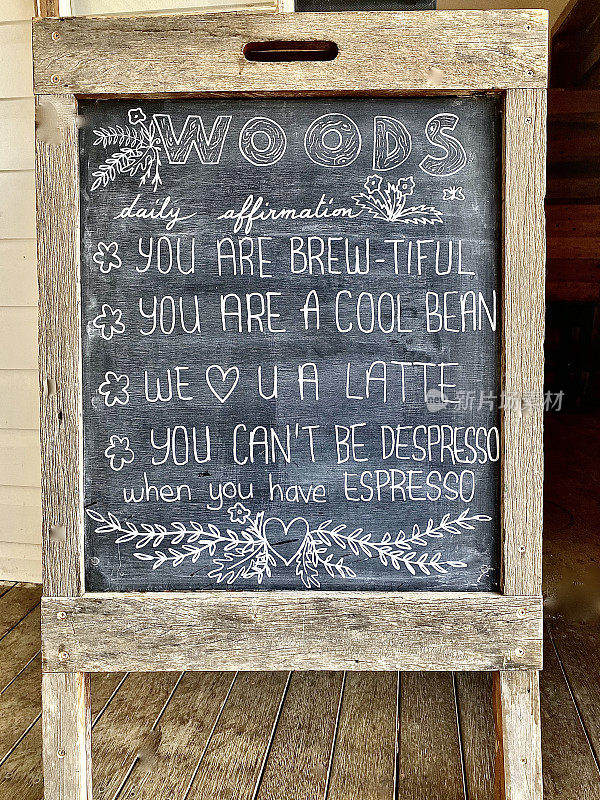 WOODS
daily affirmation
YOU ARE BREW-TIFUL
YOU ARE A COOL BEAN
WE ♡ U A LATTE
YOU CAN'T BE DESPRESSO
when you have ESPRESSO
新片场